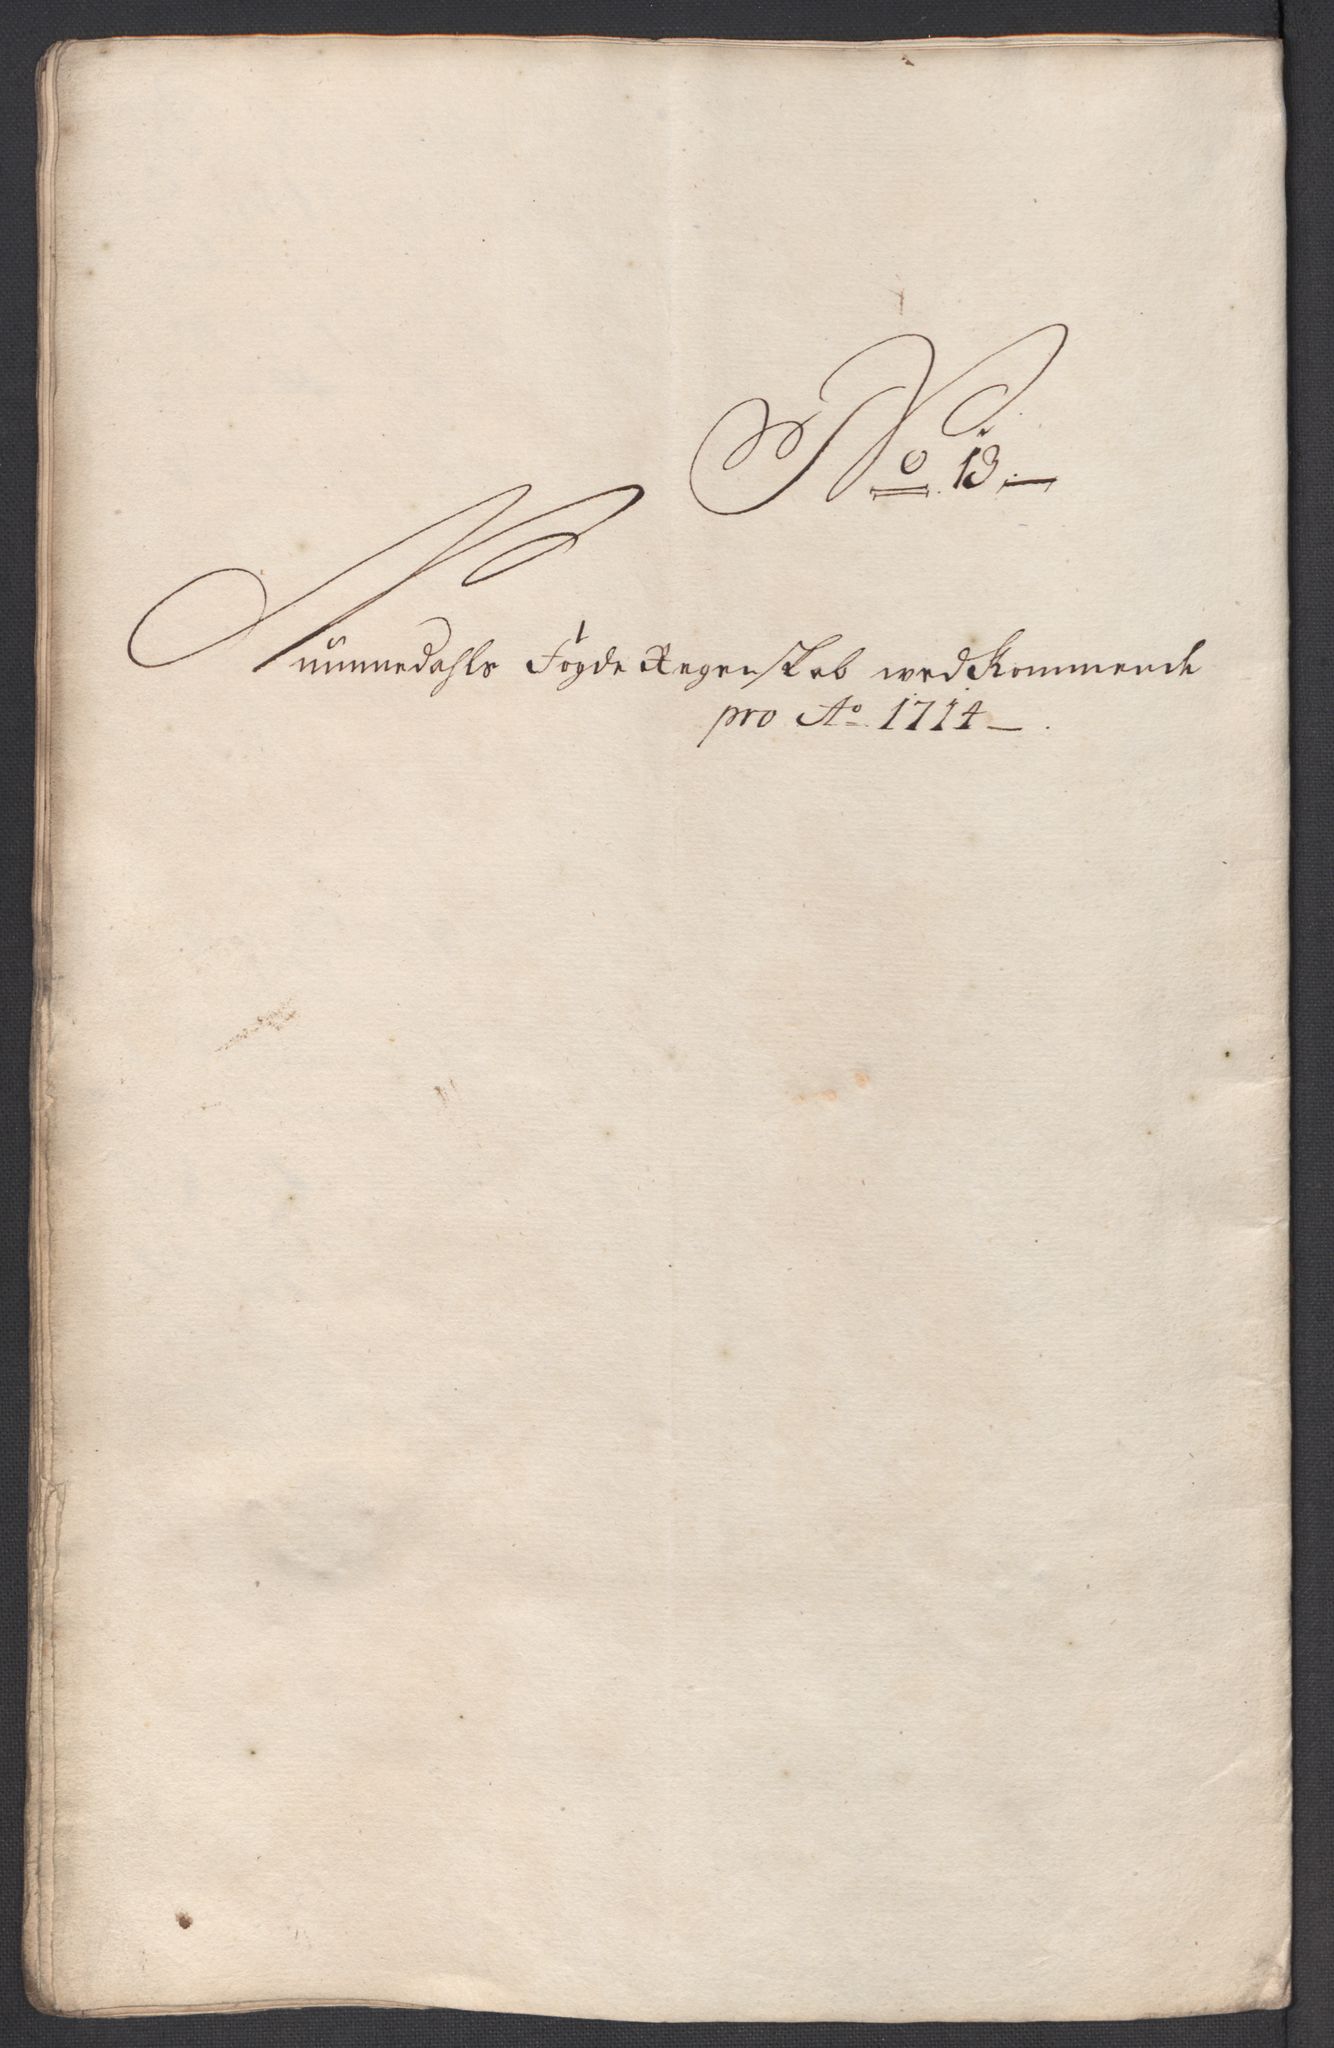 No 13
Nummedahls Fogde Regenskab wedkommende
pro Ao 1714